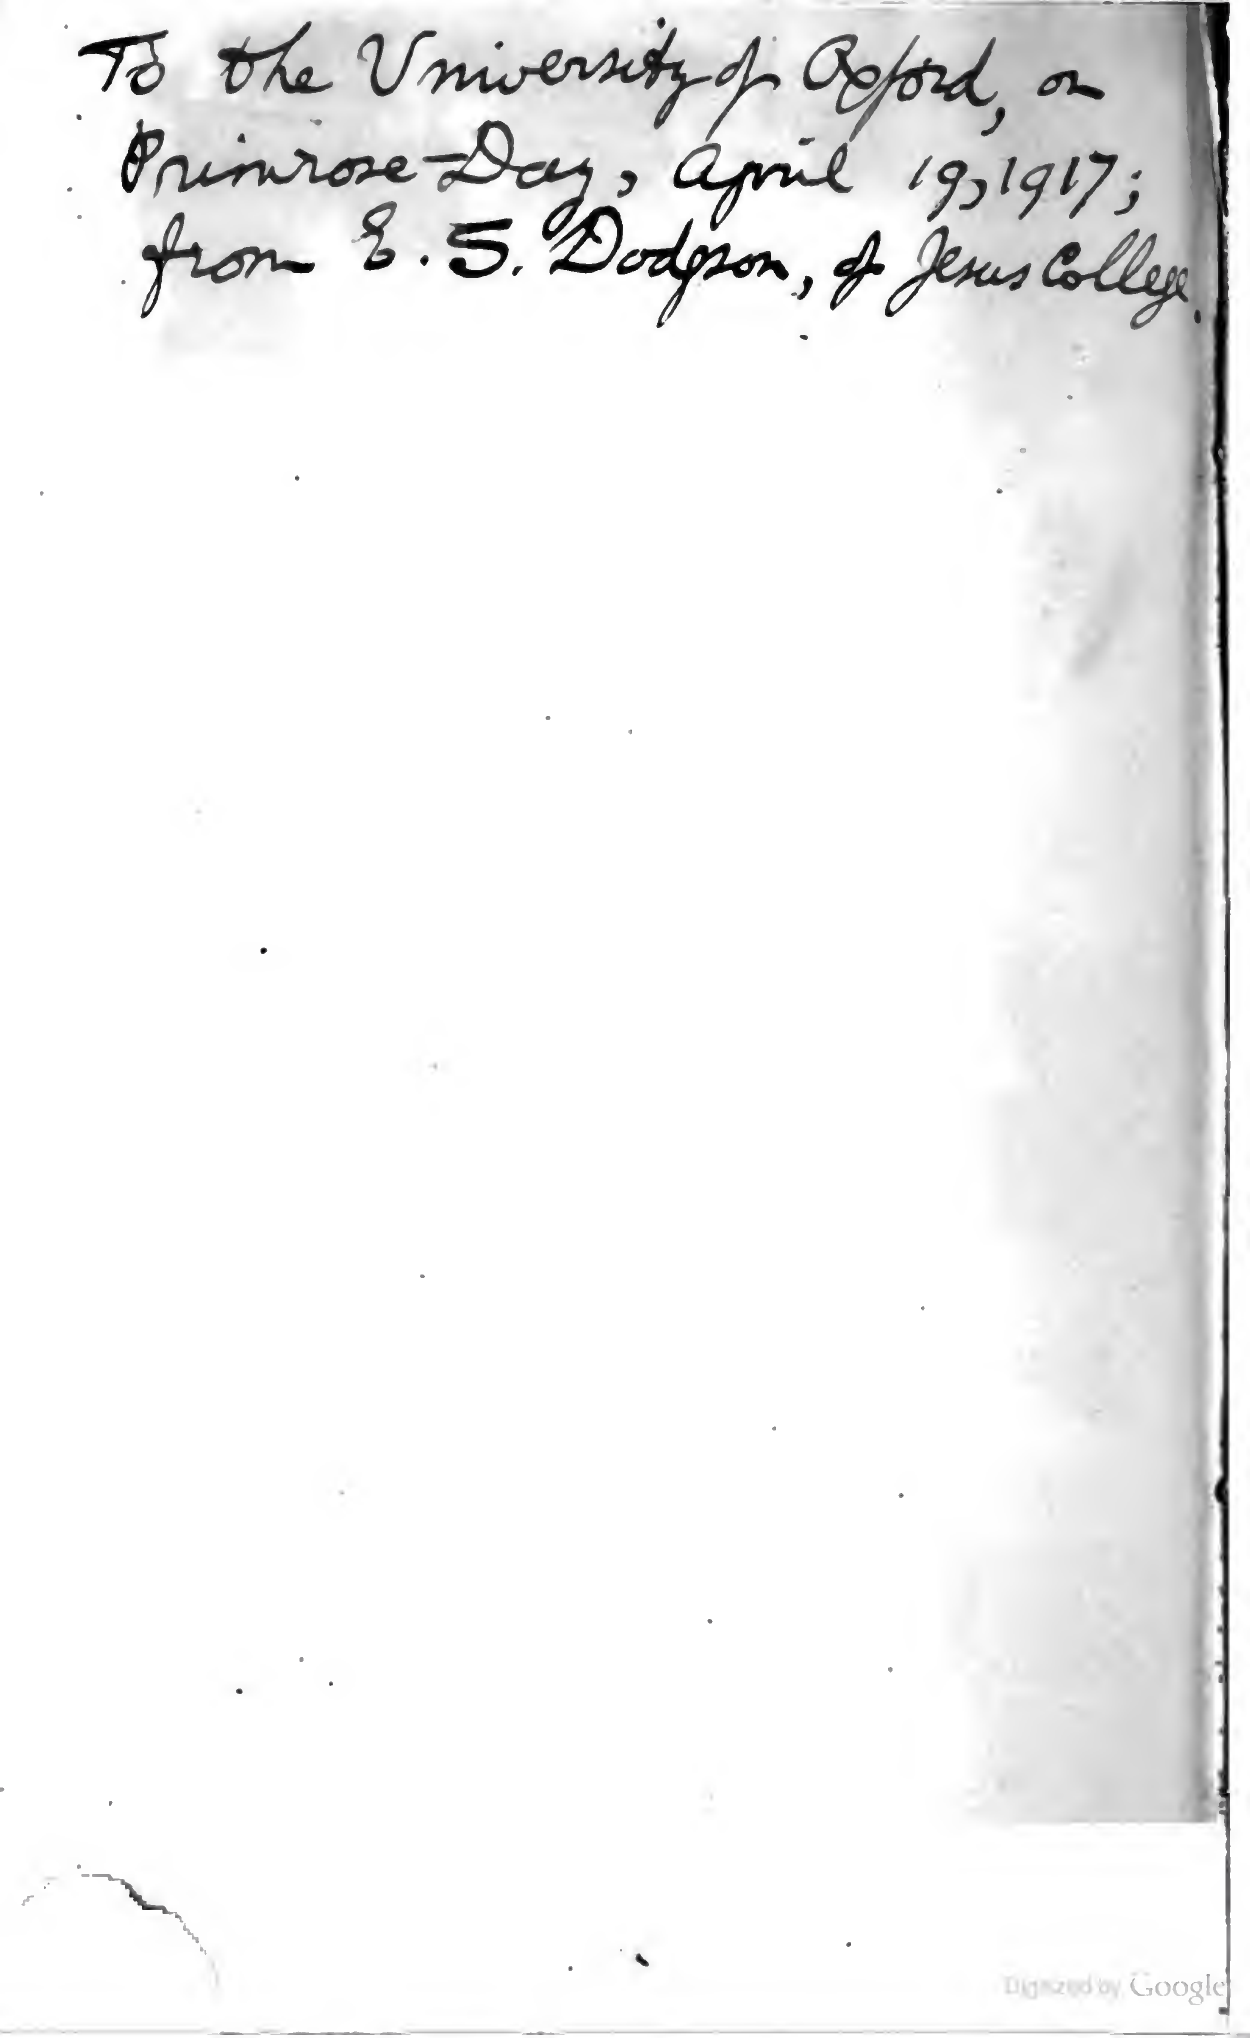 To the University of Oxford, on
Primrose-Day, April 19, 1917;
from E. S. Dodgson, of Jesus College.
Digitized by Google